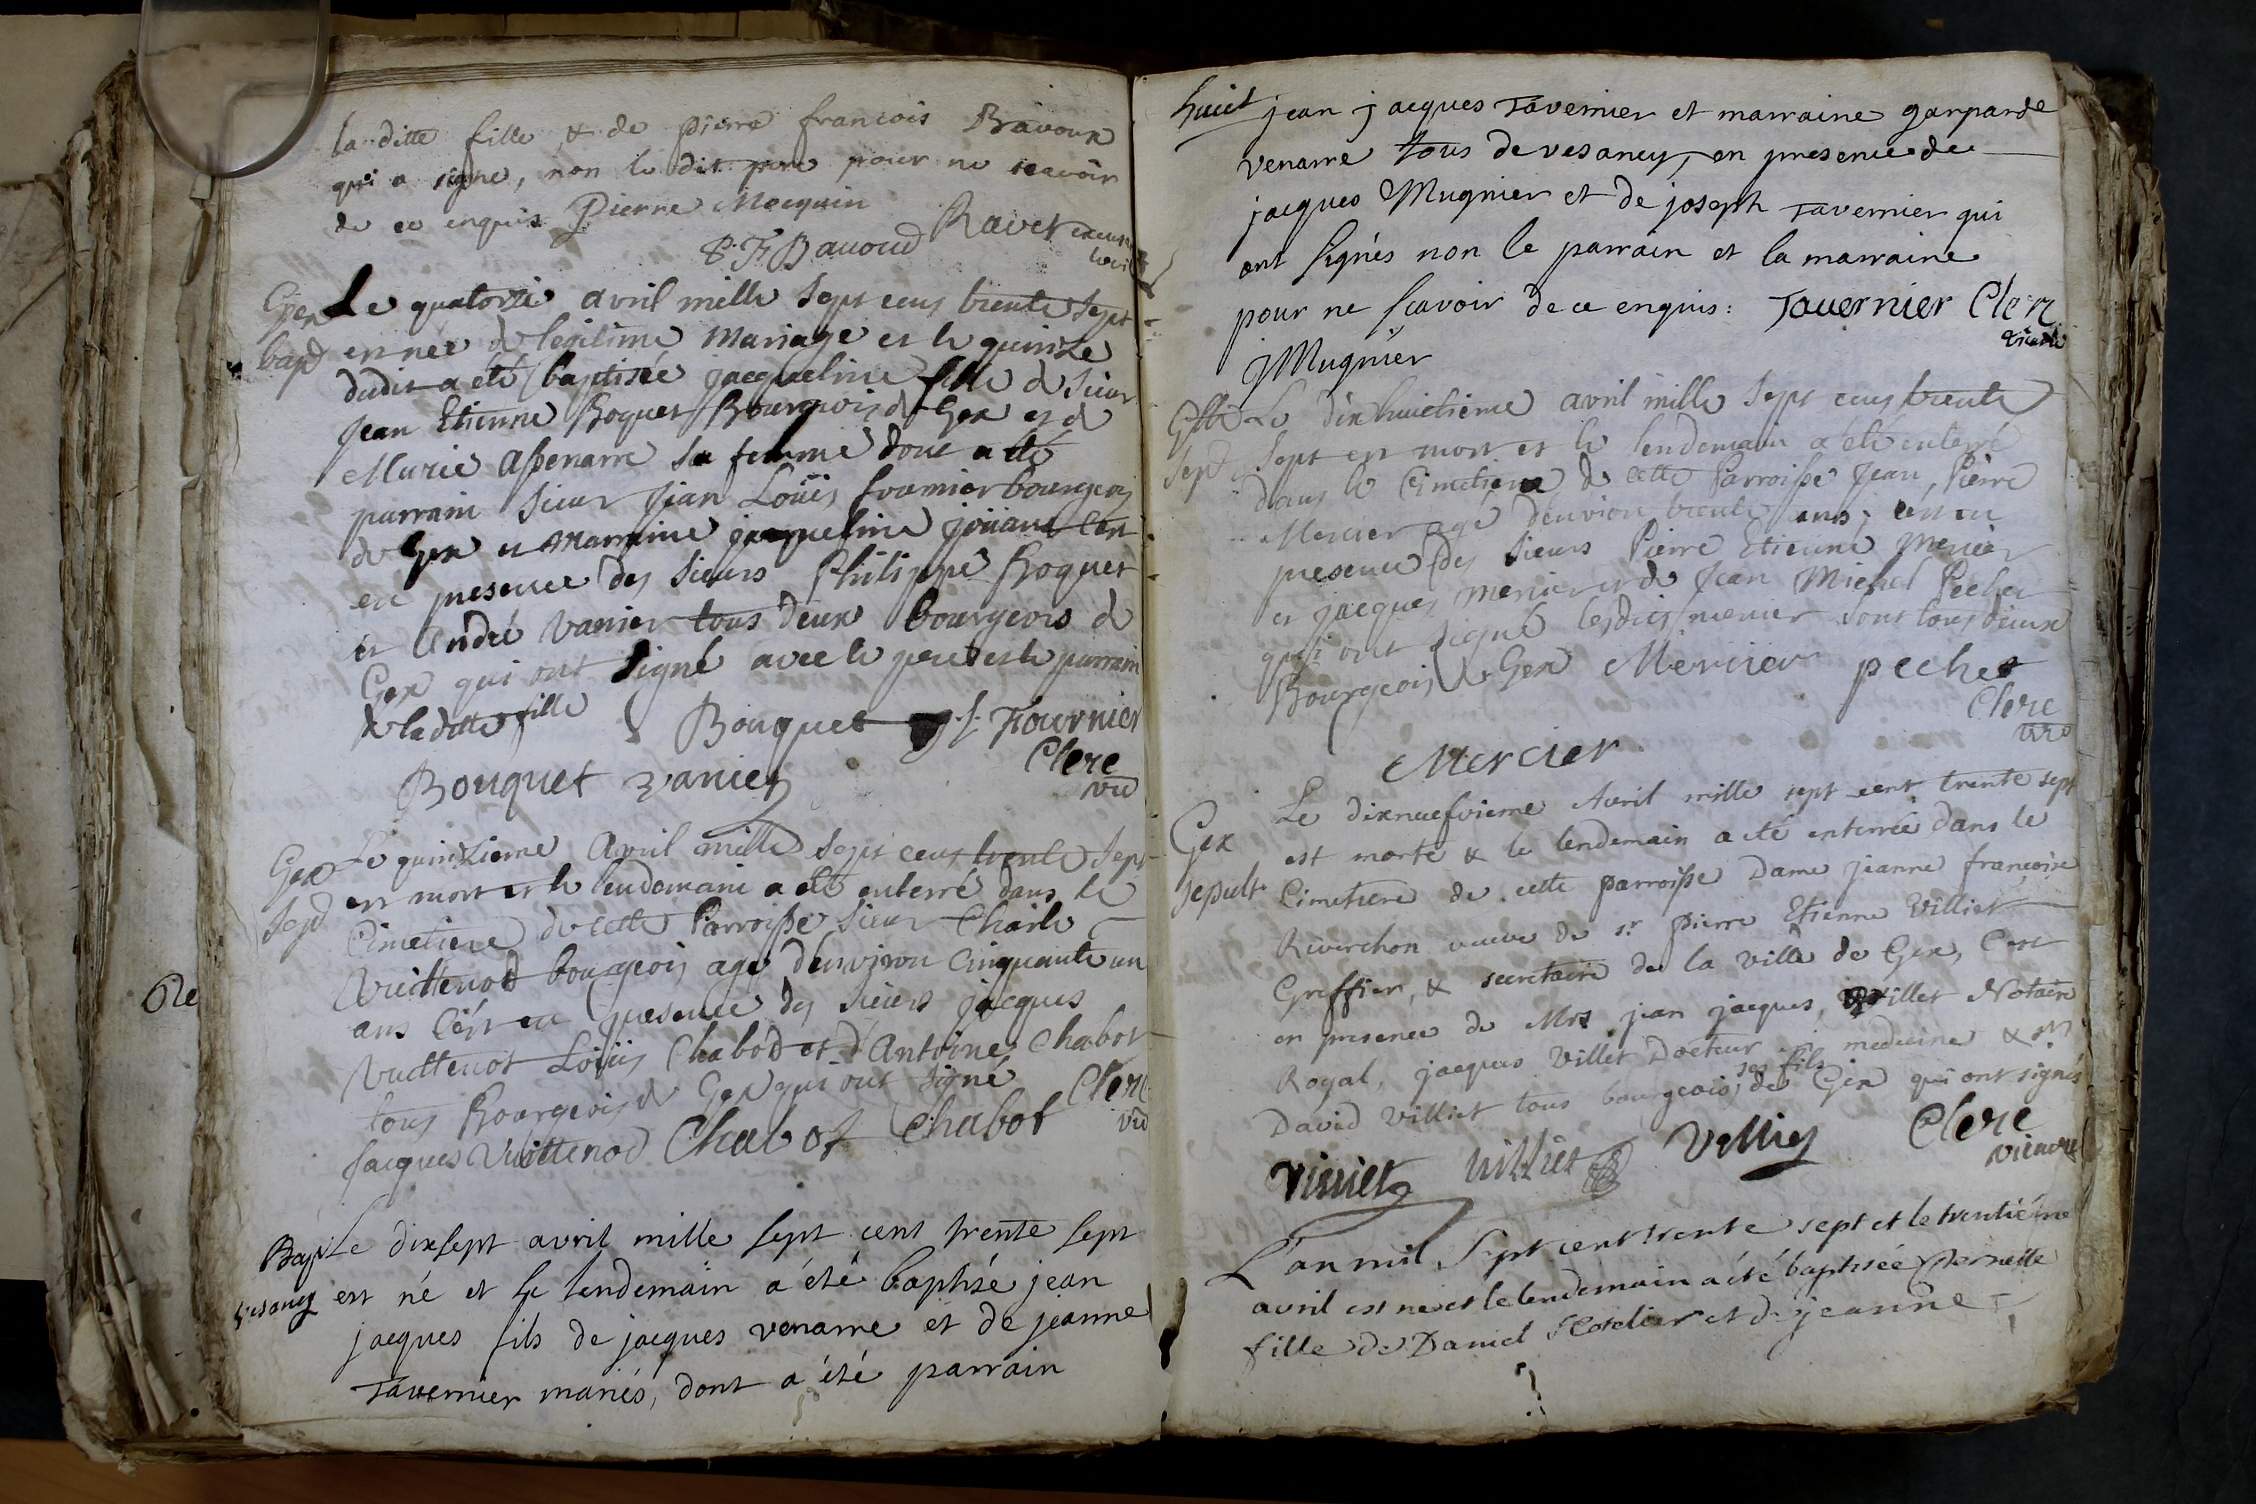 la ditte fille & de pierre francois Bavoux
qui a signé, non le dit pere pour ne scavoir
de ce enquis Pierre Mocquin
P. F. Bauoud Ravet
Gex Le quatorze avril mille sept cens trente sept
bapt est née de legitime mariage et le quinze
dudit a été baptisée jacqueline fille de Sieur
Jean Etienne Boquet Bourgeois de Gex et de
Marie assenarre sa femme dont a été
parrain Sieur Jean Loüis fournier bourgeois
de Gex et marraine jacqueline joüant C'est
en presence des Sieurs Philippe Boquet
et André Vanier tous deux bourgeois de
Gex qui ont signé avec le pere et le parrain
de la ditte fille Bouquet j. l. Fournier
Clerc
Bouquet vanier vic
Gex Le quinzieme Avril mille sept cens trente sept
sepd est mort et le lendemain a été enterré dans le
Cimetiere de cette Parroisse Sieur Charle
Vuittenod bourgeois agé d'environ cinquante un
ans C'est en presence des Sieurs jacques
Vuittenot Loüis Chabod et d'Antoine Chabot
tous Bourgeois de Gex qui ont signé Clerc
Jacques Vuittenod Chabot Chabot vic
Bapt Le dixsept avril mille sept cent trente sept
Vesancy est né et le lendemain a été baptisé jean
jacques fils de jacques venarre et de jeanne
Tavernier mariés, dont a été parrain
Ge
huict jean jacques Tavernier et marraine gasparde
venarre tous de vesancy, en presence de
jacques Mugnier et de joseph Tavernier qui
ont signés non le parrain et la marraine
pour ne scavoir de ce enquis: Tauernier Clerc
vicaire
J Mugnier
Gex Le dixhuictième avril mille sept cens trente
sepd sept est mort et le lendemain a été enterré
dans le Cimetiere de cette Parroisse Jean Pierre
Mercier agé d'environ trente ans; C'est en
presence des Sieurs Pierre Etienne Mercier
et jacques mercier et de Jean Michel Pechet
qui ont signé lesdits mercier sont tous deux
Bourgeois de Gex Mercier pechet
Clerc
vic
Mercier
Gex Le dixneufvieme Avril mille sept cent trente sept
est morte & le lendemain a été enterrée dans le
sepult. Cimetiere de cette parroisse Dame jeanne françoise
Riverchon veuve de sr pierre Etienne Villiet
Greffier, & secretaire de la ville de Gex, C'est
en presence de Mrs jean jacques, Villiet Notaire
Royal, jacques Villet Docteur en medecine & Sr
David Villiet tous bourgeois ses fils de Gex qui ont signés
Villiet villiet Villiet Clerc
vicaire
L'an mil sept cent trente sept et le trentième
avril est née et le lendemain a été baptisée Pernette
fille de Daniel et de jeanne